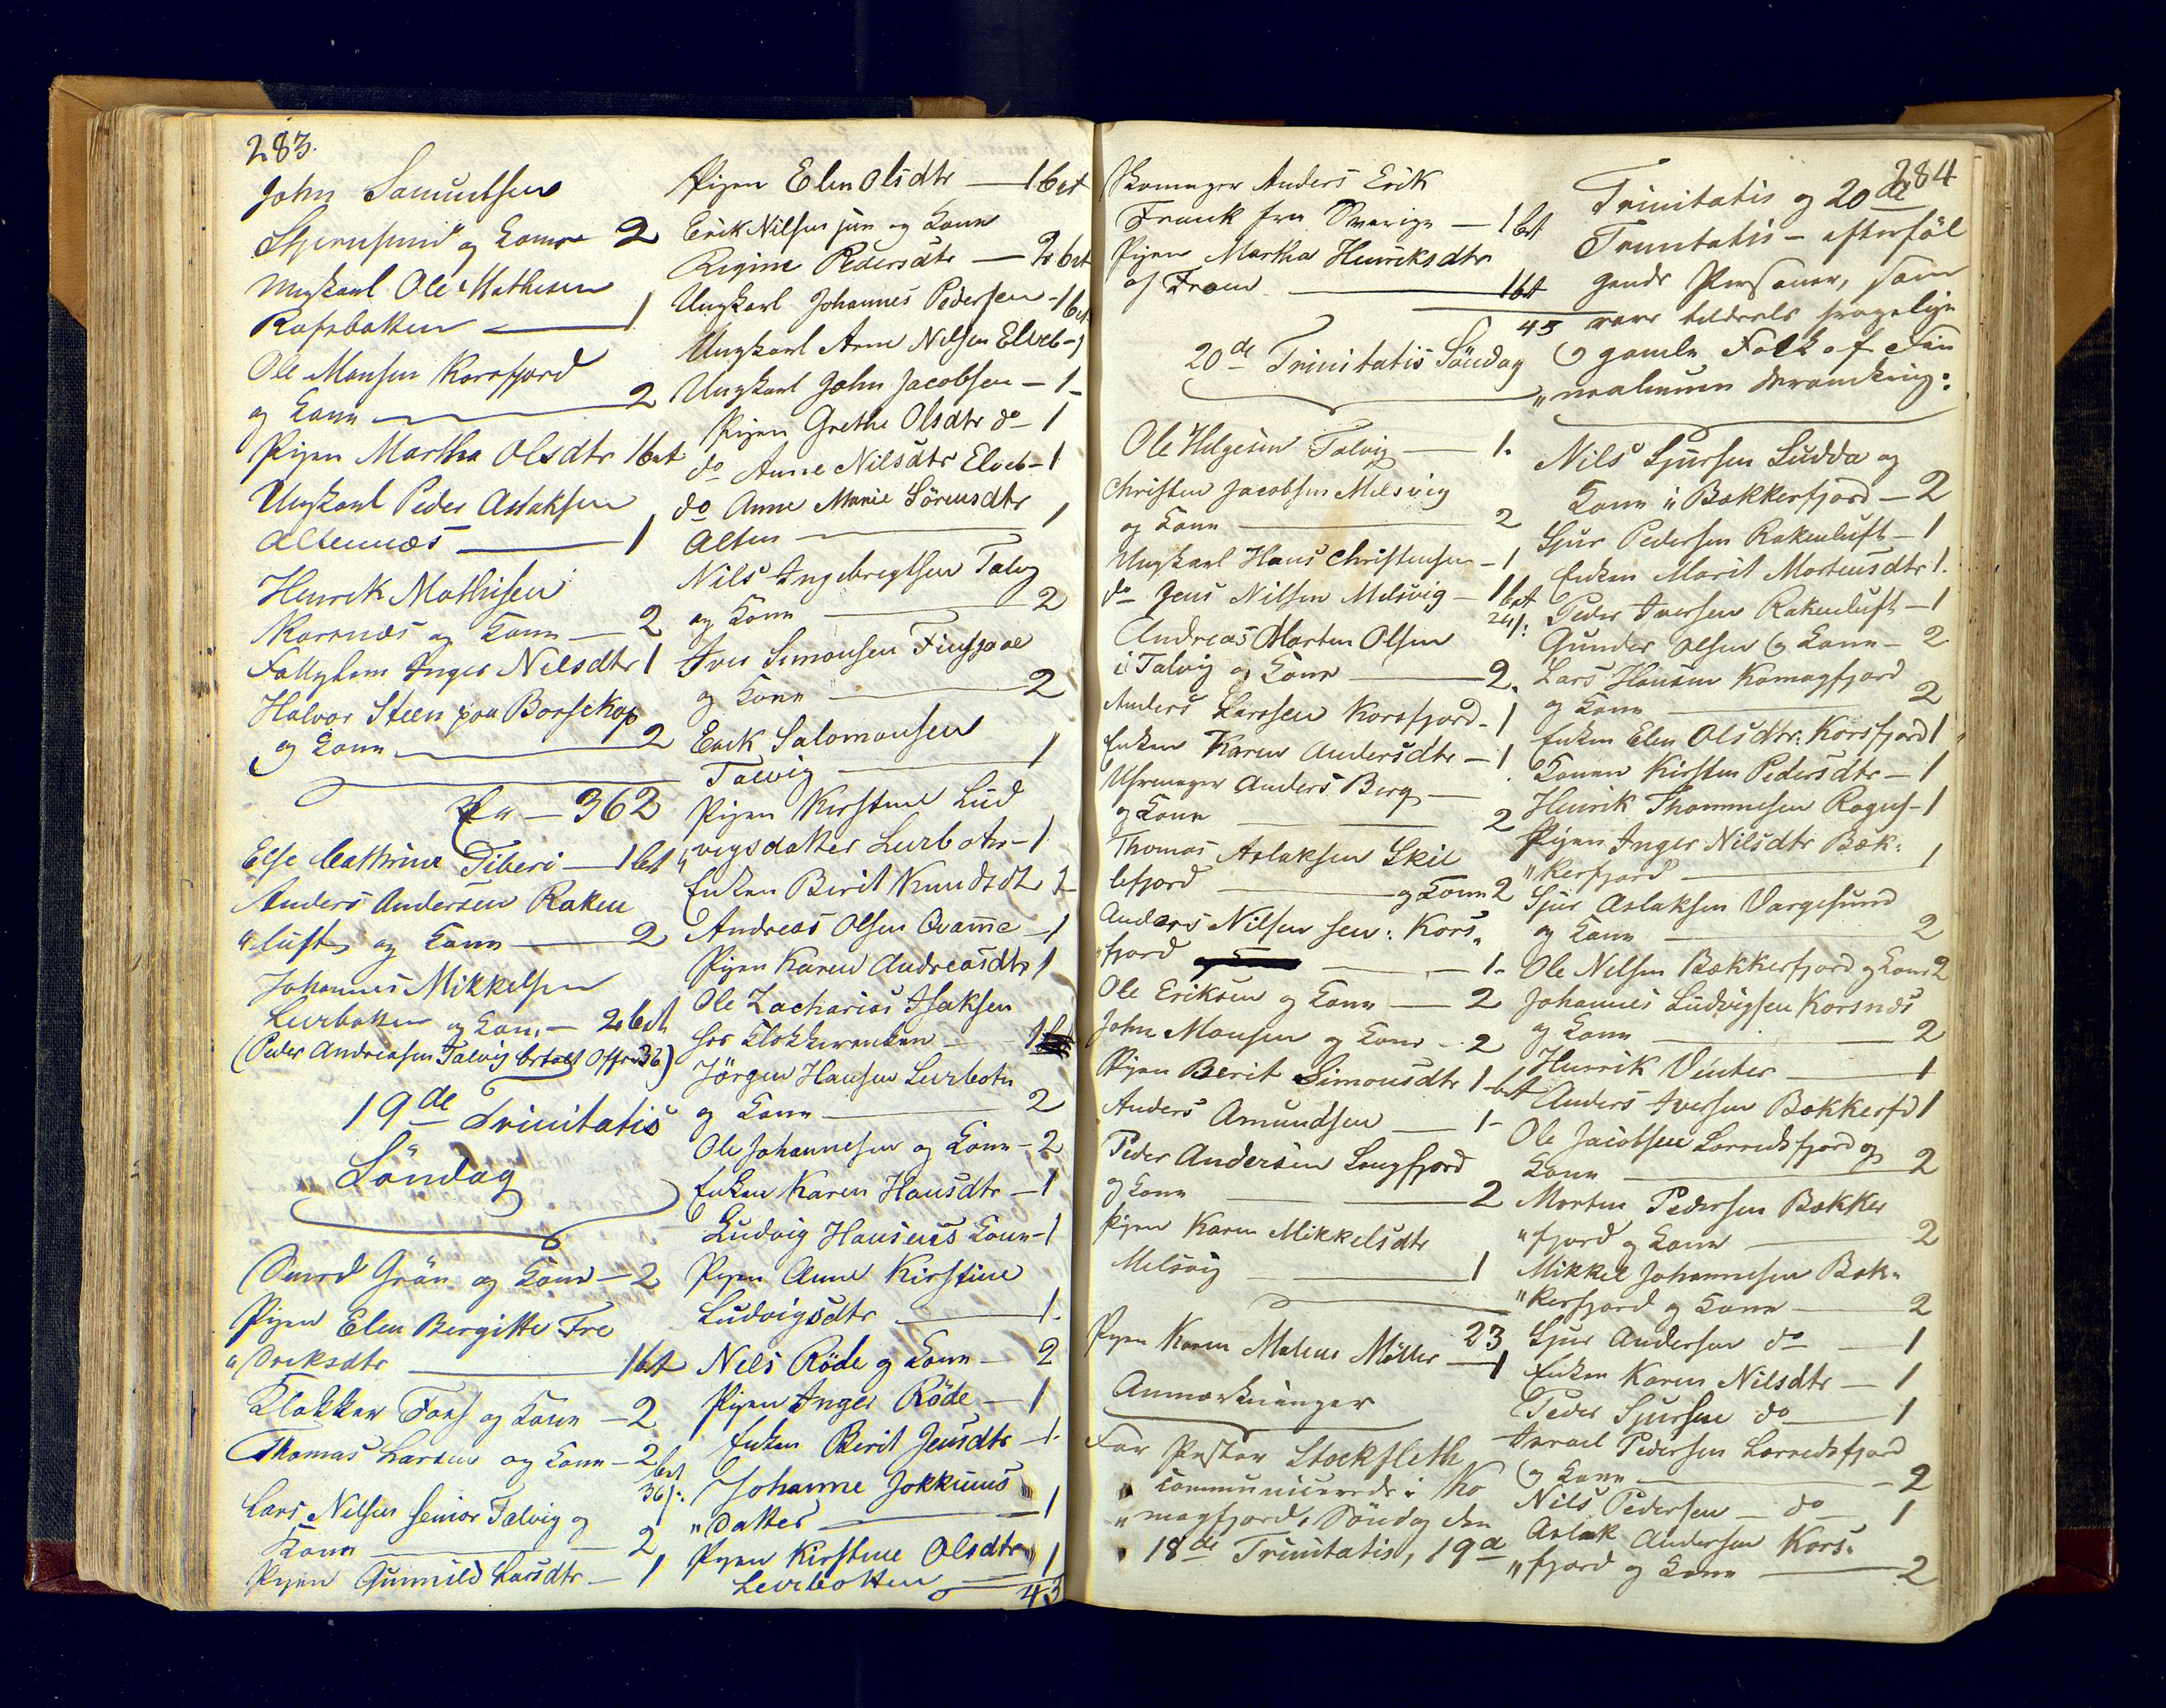 283.
John Samuelsen
Stjernsund og Kone 2
Ungkarl Ole Mathisen
Rafsbotten 1
Ole Monsen Korsfjord
og Kone 2
Pigen Martha Olsdtr 1 bet
Ungkarl Peder Aslaksen
Altennæs 1
Henrik Mathisen
Korsnæs og Kone 2
Inger Nilsdtr 1
Halvor Steen paa Bossekop
og Kone 2
362
Else Cathrine Tiberi 1 bet
Anders Andersen Raken
"luft og Kone 2
Johannes Mikkelsen
Leerbotten og Kone 2 bet
(Peder Andreasen Talvig betalt Offer 36)
19de Trinitatis
Söndag
Smed Grön og Kone 2
Pigen Elen Bergitte Fre
"driksdtr 1 bet
Klokker Fors og Kone 2
Thomas Larsen og Kone 2
bet
36 s:
Lars Nilsen senior Talvig og
Kone 2
Pigen Gunnild Larsdtr 1
Pigen Elen Olsdtr 1 bet
Erik Nilsen jun og Kone
Regine Pedersdtr 2 bet
Ungkarl Johannes Pedersen 1 bet
Ungkarl Arne Nilsen Elveb 1
Ungkarl John Jacobsen 1
Pigen Grethe Olsdtr do 1
do Anne Nilsdtr Elveb 1
do Anne Marie Sörensdtr
Alten 1
Nils Ingebregtsen Talvig
og Kone 2
Iver Simonsen
og Kone 2
Erik Salomonsen
Talvig 1
Pigen Kirstine Lud
"vigsdatter Leerbotn 1
Enken Berit Knudsdtr 1
Andreas Olsen Qvamme 1
Pigen Karen Andreasdtr 1
Ole Zacharias Isaksen
hos Klokkerenken 1
Jörgen Hansen Leerbotn
og Kone 2
Ole Johannesen og Kone 2
Enken Karen Hansdtr 1
Ludvig Hansens Kone 1
Pigen Anne Kirstine
Ludvigsdtr 1
Nils Röde og Kone 2
Pigen Inger Röde 1
Enken Berit Jensdtr 1
Johanne Jokkums
"datter 1
Pigen Kirstine Olsdtr 1
Leerbotten
43
284
Skomager Anders Erik
Frank fra Sverige 1 bet
Pigen Martha Henriksdtr
af 1 bet
45
20de Trinitatis Söndag
Ole Helgesen Talvig 1
Christen Jacobsen Melsvig
og Kone 2
Ungkarl Hans Christensen 1
do Jens Nilsen Melsvig 1 bet
24 s:
Andreas Morten Olsen
i Talvig og Kone 2
Anders Larssen Korsfjord 1
Enken Karen Andersdtr 1
Uhrmager Anders Berg
og Kone 2
Thomas Aslaksen Skil
lefjord og Kone 2
Anders Nilsen sen: Kors
"fjord 1
Ole Eriksen og Kone 2
John Monsen og Kone 2
Pigen Berit Simonsdtr 1 bet
Anders Amundsen 1
Peder Andersen Langfjord
og Kone 2
Pigen Karen Mikkelsdtr
Melsvig 1
23
Pigen Karen Malene Möller 1
Anmærkninger
For Pastor Stockfleth
communicerede i Ko
"magfjord, Söndag den
18de Trinitatis, 19de
Trinitatis og 20de
Trinitatis – efterföl
gende Personer, som
vare tildeels svagelige
og gamle Folk af
Nils Sjursen Ludda og
Kone i Bekkerfjord 2
Sjur Pedersen Rakenluft 1
Enken Marit Mortensdtr 1
Peder Iversen Rakenluft 1
Gunder Olsen og Kone 2
Lars Hansen Komagfjord
og Kone 2
Enken Elen Olsdtr: Korsfjord 1
Konen Kirsten Pedersdtr 1
Henrik Thommesen 1
Pigen Inger Nilsdtr Bek
"kerfjord 1
Sjur Aslaksen Vargesund
og Kone 2
Ole Nilsen Bekkerfjord og Kone 2
Johannes Ludvigsen Korsnæs
og Kone 2
Henrik Vinter 1
Anders Iversen Bekkerfd 1
Ole Jacobsen Lerredsfjord og
Kone 2
Morten Pedersen Bekker
"fjord og Kone 2
Mikkel Johannesen Bek
"kerfjord og Kone 2
Sjur Andersen do 1
Enken Karen Nilsdtr 1
Peder Sjursen do 1
Israel Pedersen Lerredsfjord
og Kone 2
Nils Pedersen do 1
Aslak Andersen Kors
"fjord og Kone 2